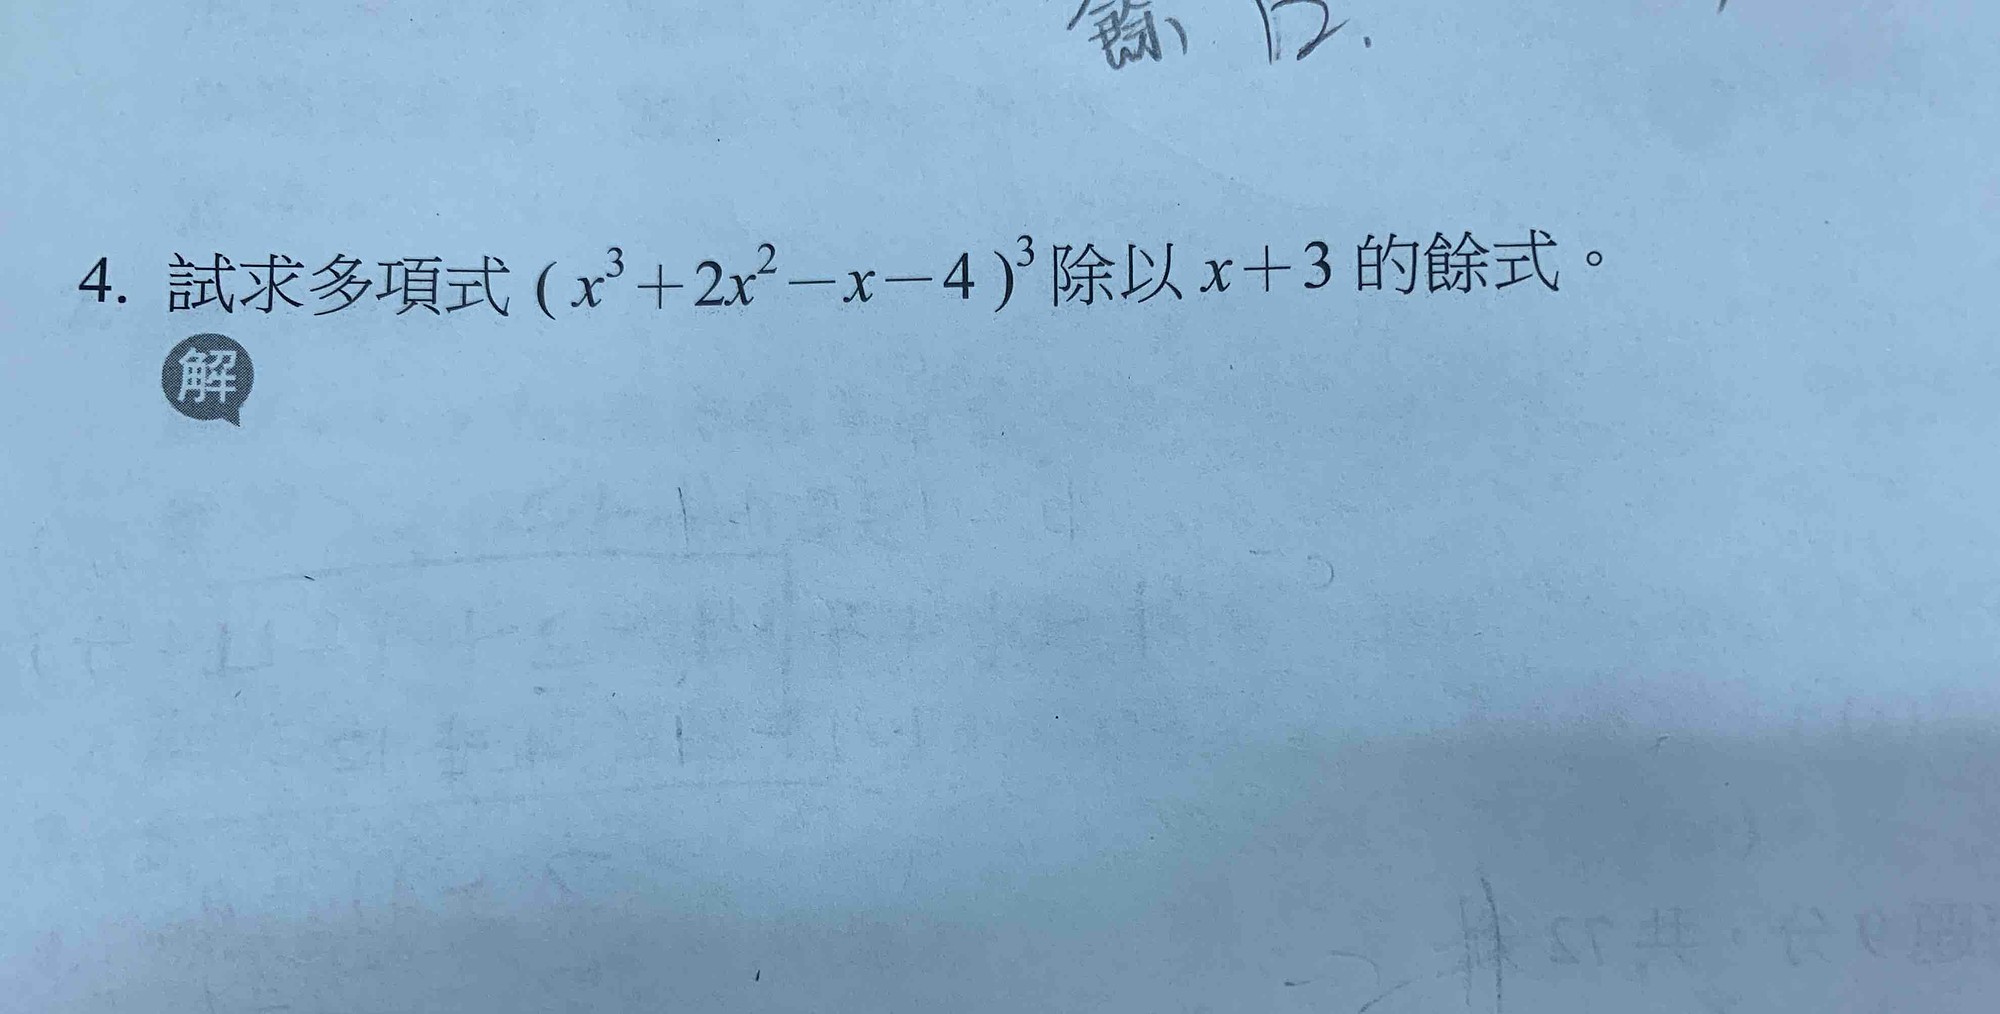 餘 12.
4. 試求多項式 ( x³＋2x²－x－4 )³ 除以 x＋3 的餘式。
解